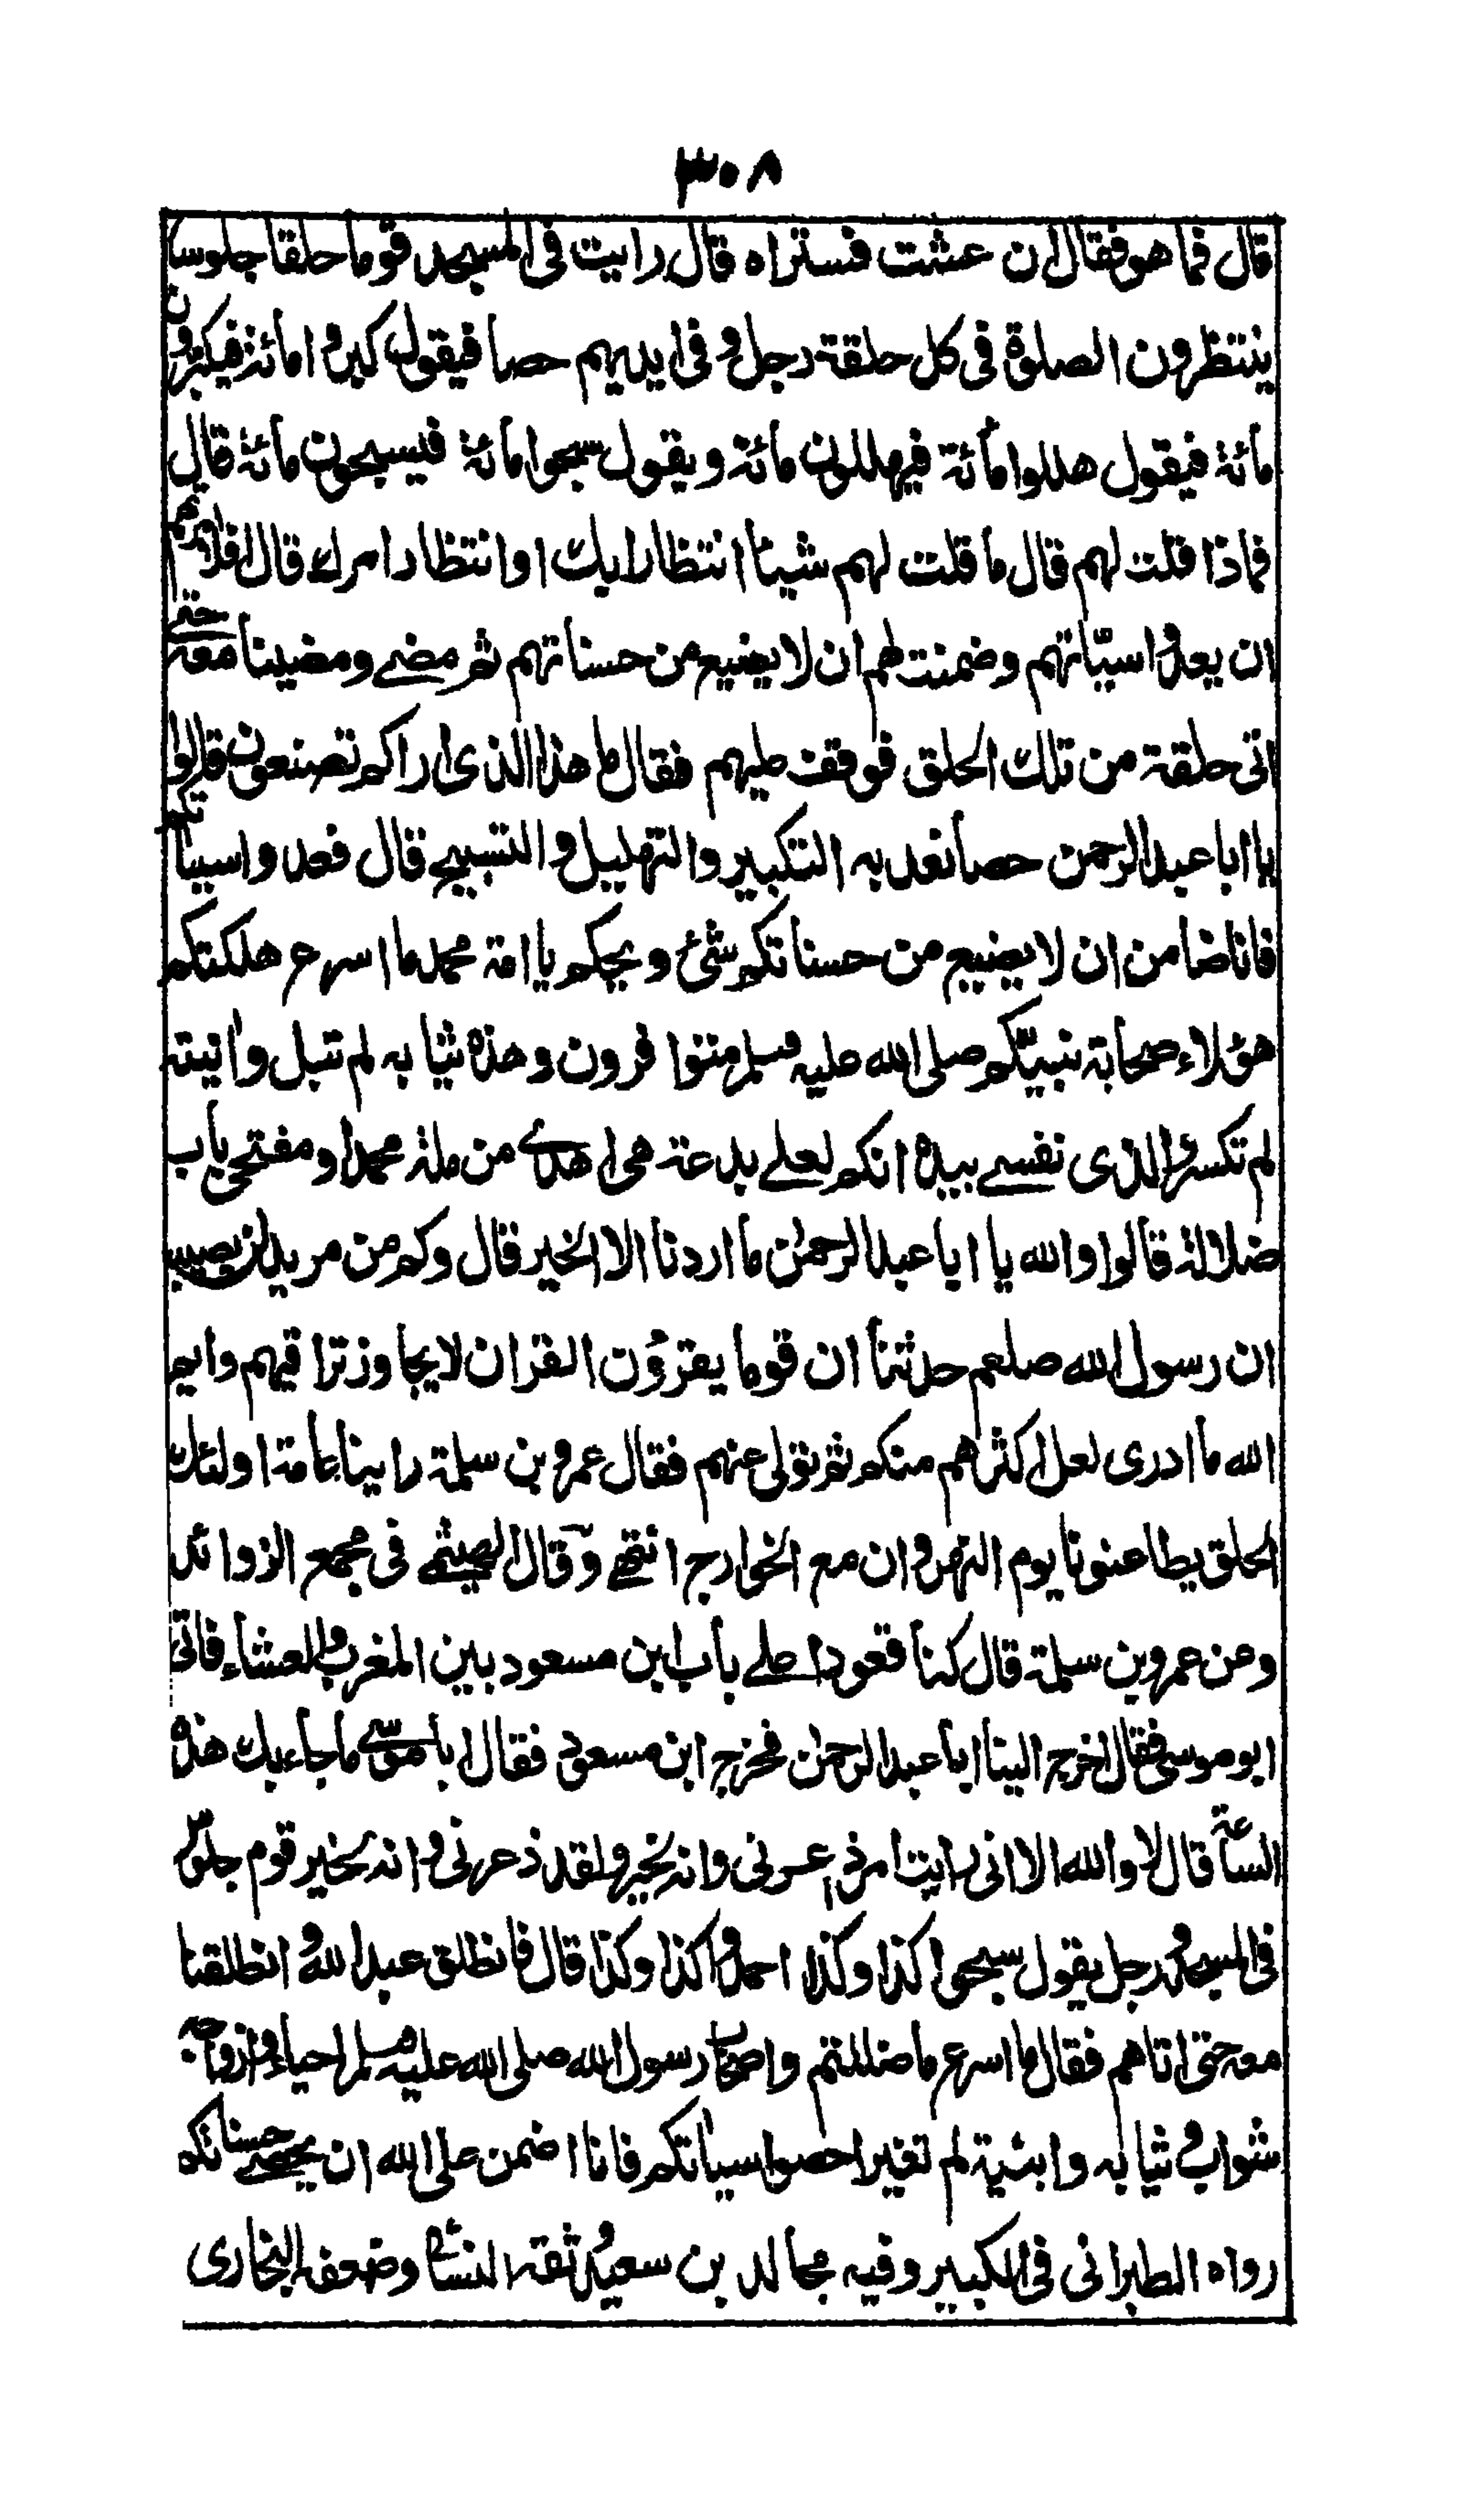 ٣٠٨
قال فما هو فقال ان عشت فستراه قال رايت فى المسجد قوما حلقا جلوسا
ينتظرون الصلوة فى كل حلقة رجل و فى ايديهم حصا فيقول كبروا مائة فيكبرون
مائة فيقول هللوا مائة فيهللون مائة ويقول سبحوا مائة فيسبحون مائة قال
فماذا قلت لهم قال ما قلت لهم شيئا انتظار رايك او انتظار امرك قال افلا امرتهم
ان يعدوا سيّاتهم وضمنت لهم ان لا يضيع من حسناتهم ثم مضى ومضينا معه حتى
اتى حلقة من تلك الحلق فوقف عليهم فقال ما هذا الذى اراكم تصنعون قالوا
يا ابا عبد الرحمن حصا نعد به التكبير والتهليل و التسبيح قال فعدوا سيئاتكم
فانا ضامن ان لا يضيع من حسناتكم شئ ويحكم يا امة محمد ما اسرع هلكتكم
هؤلاء صحابة نبيّكم صلى الله عليه وسلم متوافرون وهذه ثيابه لم تبل وانيته
لم تكسر والذى نفسى بيده انكم لعلى بدعة هى اهدى من ملة محمد او مفتحى باب
ضلالة قالوا والله يا ابا عبد الرحمن ما اردنا الا الخير قال وكم من مريد لن يصيبه
ان رسول الله صلعم حدثنا ان قوما يقرؤن القران لا يجاوز تراقيهم وايم
الله ما ادرى لعل اكثرهم منكم ثم تولى عنهم فقال عمرو بن سلمة راينا عامة اولئك
الحلق يطاعنونا يوم النهروان مع الخوارج انتهى وقال الهيثمى فى مجمع الزوائد
وعن عمرو بن سلمة قال كنا قعودا على باب ابن مسعود بين المغرب والعشاء فاتى
ابو موسى فقال اخرج الينا ابا عبد الرحمن فخرج ابن مسعود فقال ابا موسى ما جاء بك هذه
الساعة قال لا والله الا انى رايت امرا ذعرنى وانه لخير ولقد ذعرنى و انه لخير قوم جلوس
فى المسجد و رجل يقول سبحوا كذا وكذا احمدوا كذا وكذا قال فانطلق عبد الله و انطلقنا
معه حتى اتاهم فقال ما اسرع ما ضللتم واصحاب رسول الله صلى الله عليه وسلم احياء وازواجه
شواب و ثيابه وابنية لم تغير احصوا سيئاتكم فانا اضمن على الله ان يحصى حسناتكم
رواه الطبرانى فى الكبير وفيه مجالد بن سعيد وثقه النسائى وضعفه البخارى